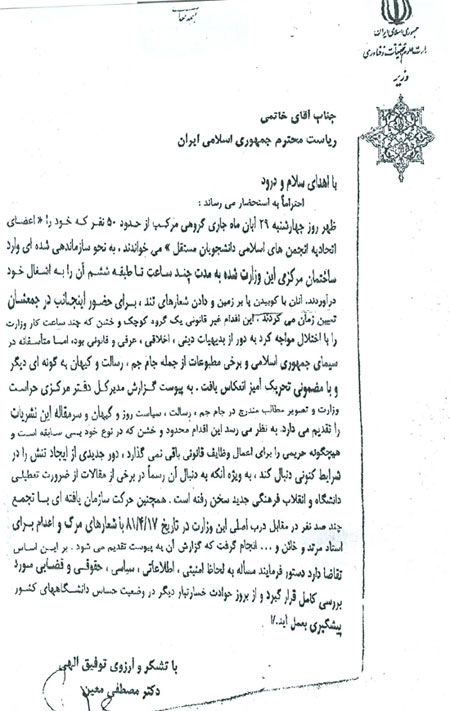 بسمه تعالی
جمهوری اسلامی ایران
وزارت علوم، تحقیقات و فناوری
وزیر
جناب آقای خاتمی
ریاست محترم جمهوری اسلامی ایران
با اهدای سلام و درود
احتراماً به استحضار می رساند :
ظهر روز چهارشنبه ۲۹ آبان ماه جاری گروهی مرکب از حدود ۵۰ نفر که خود را « اعضای
اتحادیه انجمن های اسلامی دانشجویان مستقل » می خواندند . به نحو سازماندهی شده ای وارد
ساختمان مرکزی این وزارت شده به مدت چند ساعت تا طبقه ششم آن را به اشغال خود
درآوردند. آنان با کوبیدن پا بر زمین و دادن شعارهای تند ، برای حضور اینجانب در جمعشان
تعیین زمان می کردند . این اقدام غیر قانونی یک گروه کوچک و خشن که چند ساعت کار وزارت
را با اختلال مواجه کرد به دور از بدیهیات دینی ، اخلاقی ، عرفی و قانونی بود، اما متأسفانه در
سیمای جمهوری اسلامی و برخی مطبوعات از جمله جام جم ، رسالت و کیهان به گونه ای دیگر
و با مضمونی تحریک آمیز انعکاس یافت . به پیوست گزارش مدیرکل دفتر مرکزی حراست
وزارت و تصویر مطالب مندرج در جام جم ، رسالت ، سیاست روز و کیهان و سرمقاله این نشریات
را تقدیم می دارد. به نظر می رسد این اقدام محدود و خشن که در نوع خود بی سابقه است و
هیچگونه حریمی را برای اعمال وظایف قانونی باقی نمی گذارد ، دور جدیدی از ایجاد تنش را در
شرایط کنونی دنبال کند ، به ویژه آنکه به دنبال آن رسماً در برخی از مقالات از ضرورت تعطیلی
دانشگاه و انقلاب فرهنگی جدید سخن رفته است . همچنین حرکت سازمان یافته ای با تجمع
چند صد نفر در مقابل درب اصلی این وزارت در تاریخ ۸۱/۴/۱۷ با شعارهای مرگ و اعدام برای
استاد مرتد و خائن و ... انجام گرفت که گزارش آن به پیوست تقدیم می شود . بر این اساس
تقاضا دارد دستور فرمایند مسأله به لحاظ امنیتی ، اطلاعاتی ، سیاسی ، حقوقی و قضایی مورد
بررسی کامل قرار گیرد و از بروز حوادث خسارتبار دیگر در وضعیت حساس دانشگاههای کشور
پیشگیری بعمل آید./
با تشکر و آرزوی توفیق الهی
دکتر مصطفی معین